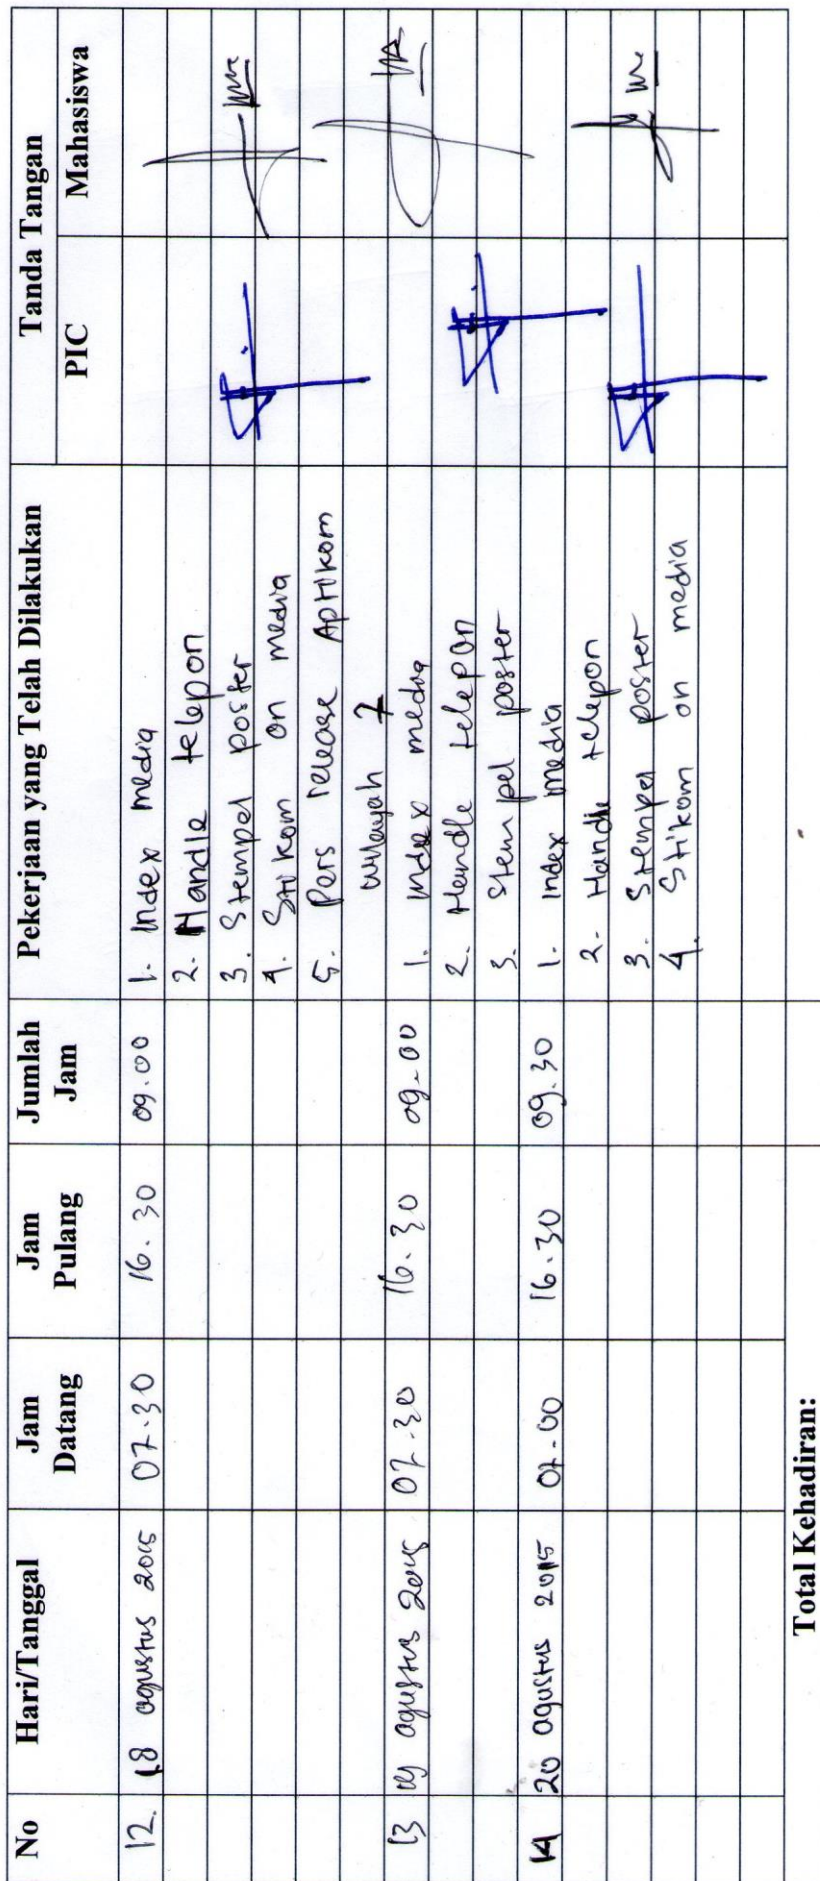 No Hari/Tanggal Jam Datang Jam Pulang Jumlah Jam Pekerjaan yang Telah Dilakukan Tanda Tangan
PIC Mahasiswa
12. 18 agustus 2015 07.30 16.30 09.00 1. Index media
2. Handle telepon
3. Stempel poster
4. Stikom on media
5. Pers release Aptikom
wilayah 7
13 19 agustus 2015 07.30 16.30 09.00 1. index media
2. Handle telepon
3. Stempel poster
14 20 agustus 2015 07.00 16.30 09.30 1. Index media
2. Handle telepon
3. Stempel poster
4. Stikom on media
Total Kehadiran: